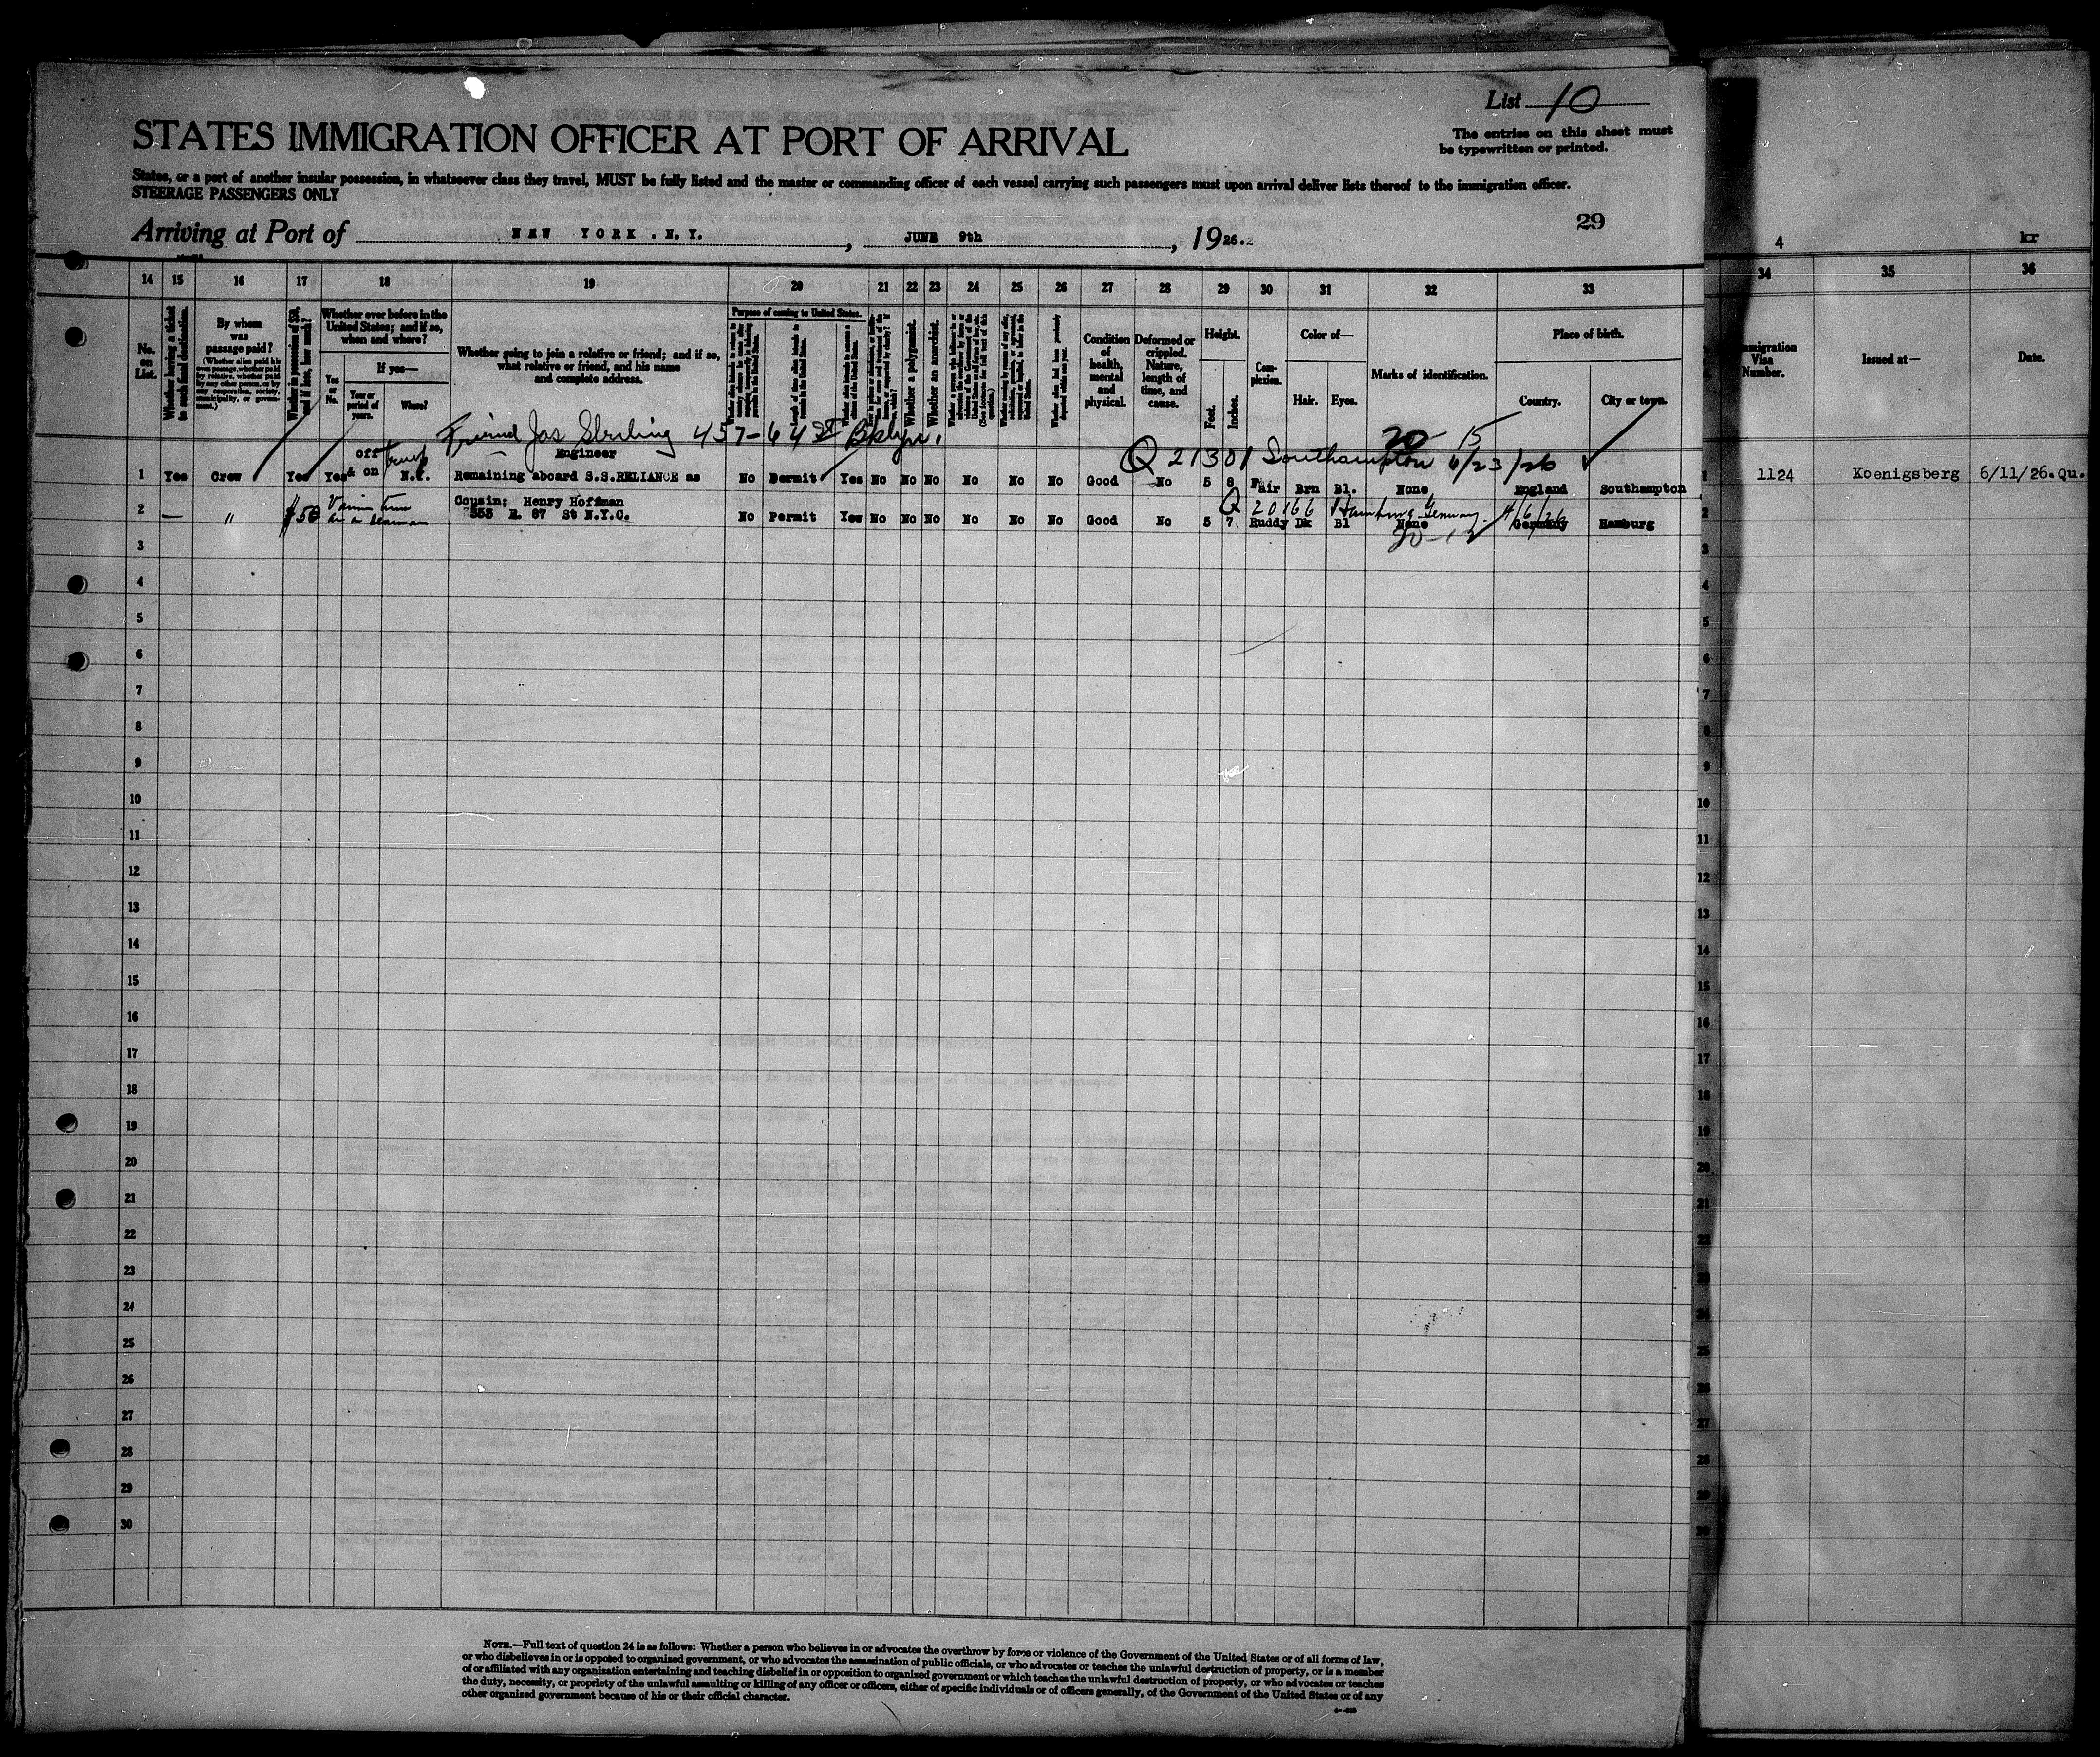 List 10
The entries on this sheet must
be typewritten or printed.
STATES IMMIGRATION OFFICER AT PORT OF ARRIVAL
States, or a port of another insular possession, in whatsoever class they travel, MUST be fully listed and the master or commanding officer of each vessel carrying such passengers must upon arrival deliver lists thereof to the immigration officer.
STEERAGE PASSENGERS ONLY
29
Arriving at Port of NEW YORK. N.Y. , JUNE 9th , 1926.
4 kr
14 15 16 17 18 19 20 21 22 23 24 25 26 27 28 29 30 31 32 33
34 35 36
No. on List.
Whether having a ticket to such final destination.
By whom was passage paid?
(Whether alien paid his own passage, whether paid by relative, whether paid by any other person, or by any corporation, society, municipality, or government.)
Whether in possession of $50, and if less, how much?
Whether ever before in the United States; and if so, when and where?
Yes or No.
If yes—
Year or period of years.
Where?
Whether going to join a relative or friend; and if so, what relative or friend, and his name and complete address.
Purpose of coming to United States.
Whether a polygamist.
Whether an anarchist.
Condition of health, mental and physical.
Deformed or crippled. Nature, length of time, and cause.
Height.
Feet.
Inches.
Complexion.
Color of—
Hair.
Eyes.
Marks of identification.
Place of birth.
Country.
City or town.
Immigration Visa Number.
Issued at—
Date.
Friend Jas Sterling 457-64 St Bklyn.
20 15
Q 21301 Southampton 6/23/26
off Engineer
1 Yes Crew Yes Yes & on N.Y. Remaining aboard S.S.RELIANCE as No Permit Yes No No No No No No Good No 5 8 Fair Brn Bl. None England Southampton
1 1124 Koenigsberg 6/11/26.Qu.
Cousin; Henry Hoffman
Q 20166 Hamburg Germany
2 — " $50 as a seaman 353 E. 87 St N.Y.C. No Permit Yes No No No No No No Good No 5 7 Ruddy Dk Bl None Germany Hamburg
2
3 3
4 4
5 5
6 6
7 7
8 8
9 9
10 10
11 11
12 12
13 13
14 14
15 15
16 16
17 17
18 18
19 19
20 20
21 21
22 22
23 23
24 24
25 25
26 26
27 27
28 28
29 29
30 30
NOTE.—Full text of question 24 is as follows: Whether a person who believes in or advocates the overthrow by force or violence of the Government of the United States or of all forms of law,
or who disbelieves in or is opposed to organized government, or who advocates the assassination of public officials, or who advocates or teaches the unlawful destruction of property, or is a member
of or affiliated with any organization entertaining and teaching disbelief in or opposition to organized government or which teaches the unlawful destruction of property, or who advocates or teaches
the duty, necessity, or propriety of the unlawful assaulting or killing of any officer or officers, either of specific individuals or of officers generally, of the Government of the United States or of any
other organized government because of his or their official character.